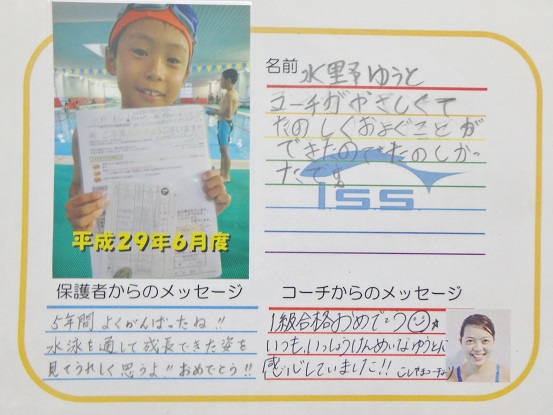 名前 水野ゆうと
コーチがやさしくて
たのしくおよぐことが
できたのでたのしかっ
たです
ISS
平成29年6月度
保護者からのメッセージ
5年間よくがんばったね!!
水泳を通して成長できた姿を
見てうれしく思うよ!! おめでとう!!
コーチからのメッセージ
1級合格おめでとう
いつも、いっしょうけんめいなゆうとくん
感心していました!!